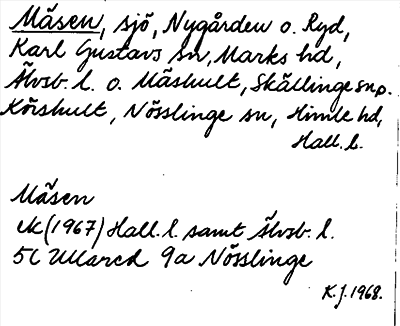 Mäsen, sjö, Nygården o. Ryd,
Karl Gustavs sn, Marks hd,
Älvsb. l. o. Mäshult, Skällinge sn o.
Körshult, Nösslinge sn, Himle hd,
Hall. l.
Mäsen
ek (1967) Hall. l. samt Älvsb. l.
5C Ullared 9a Nösslinge
K.J. 1968.